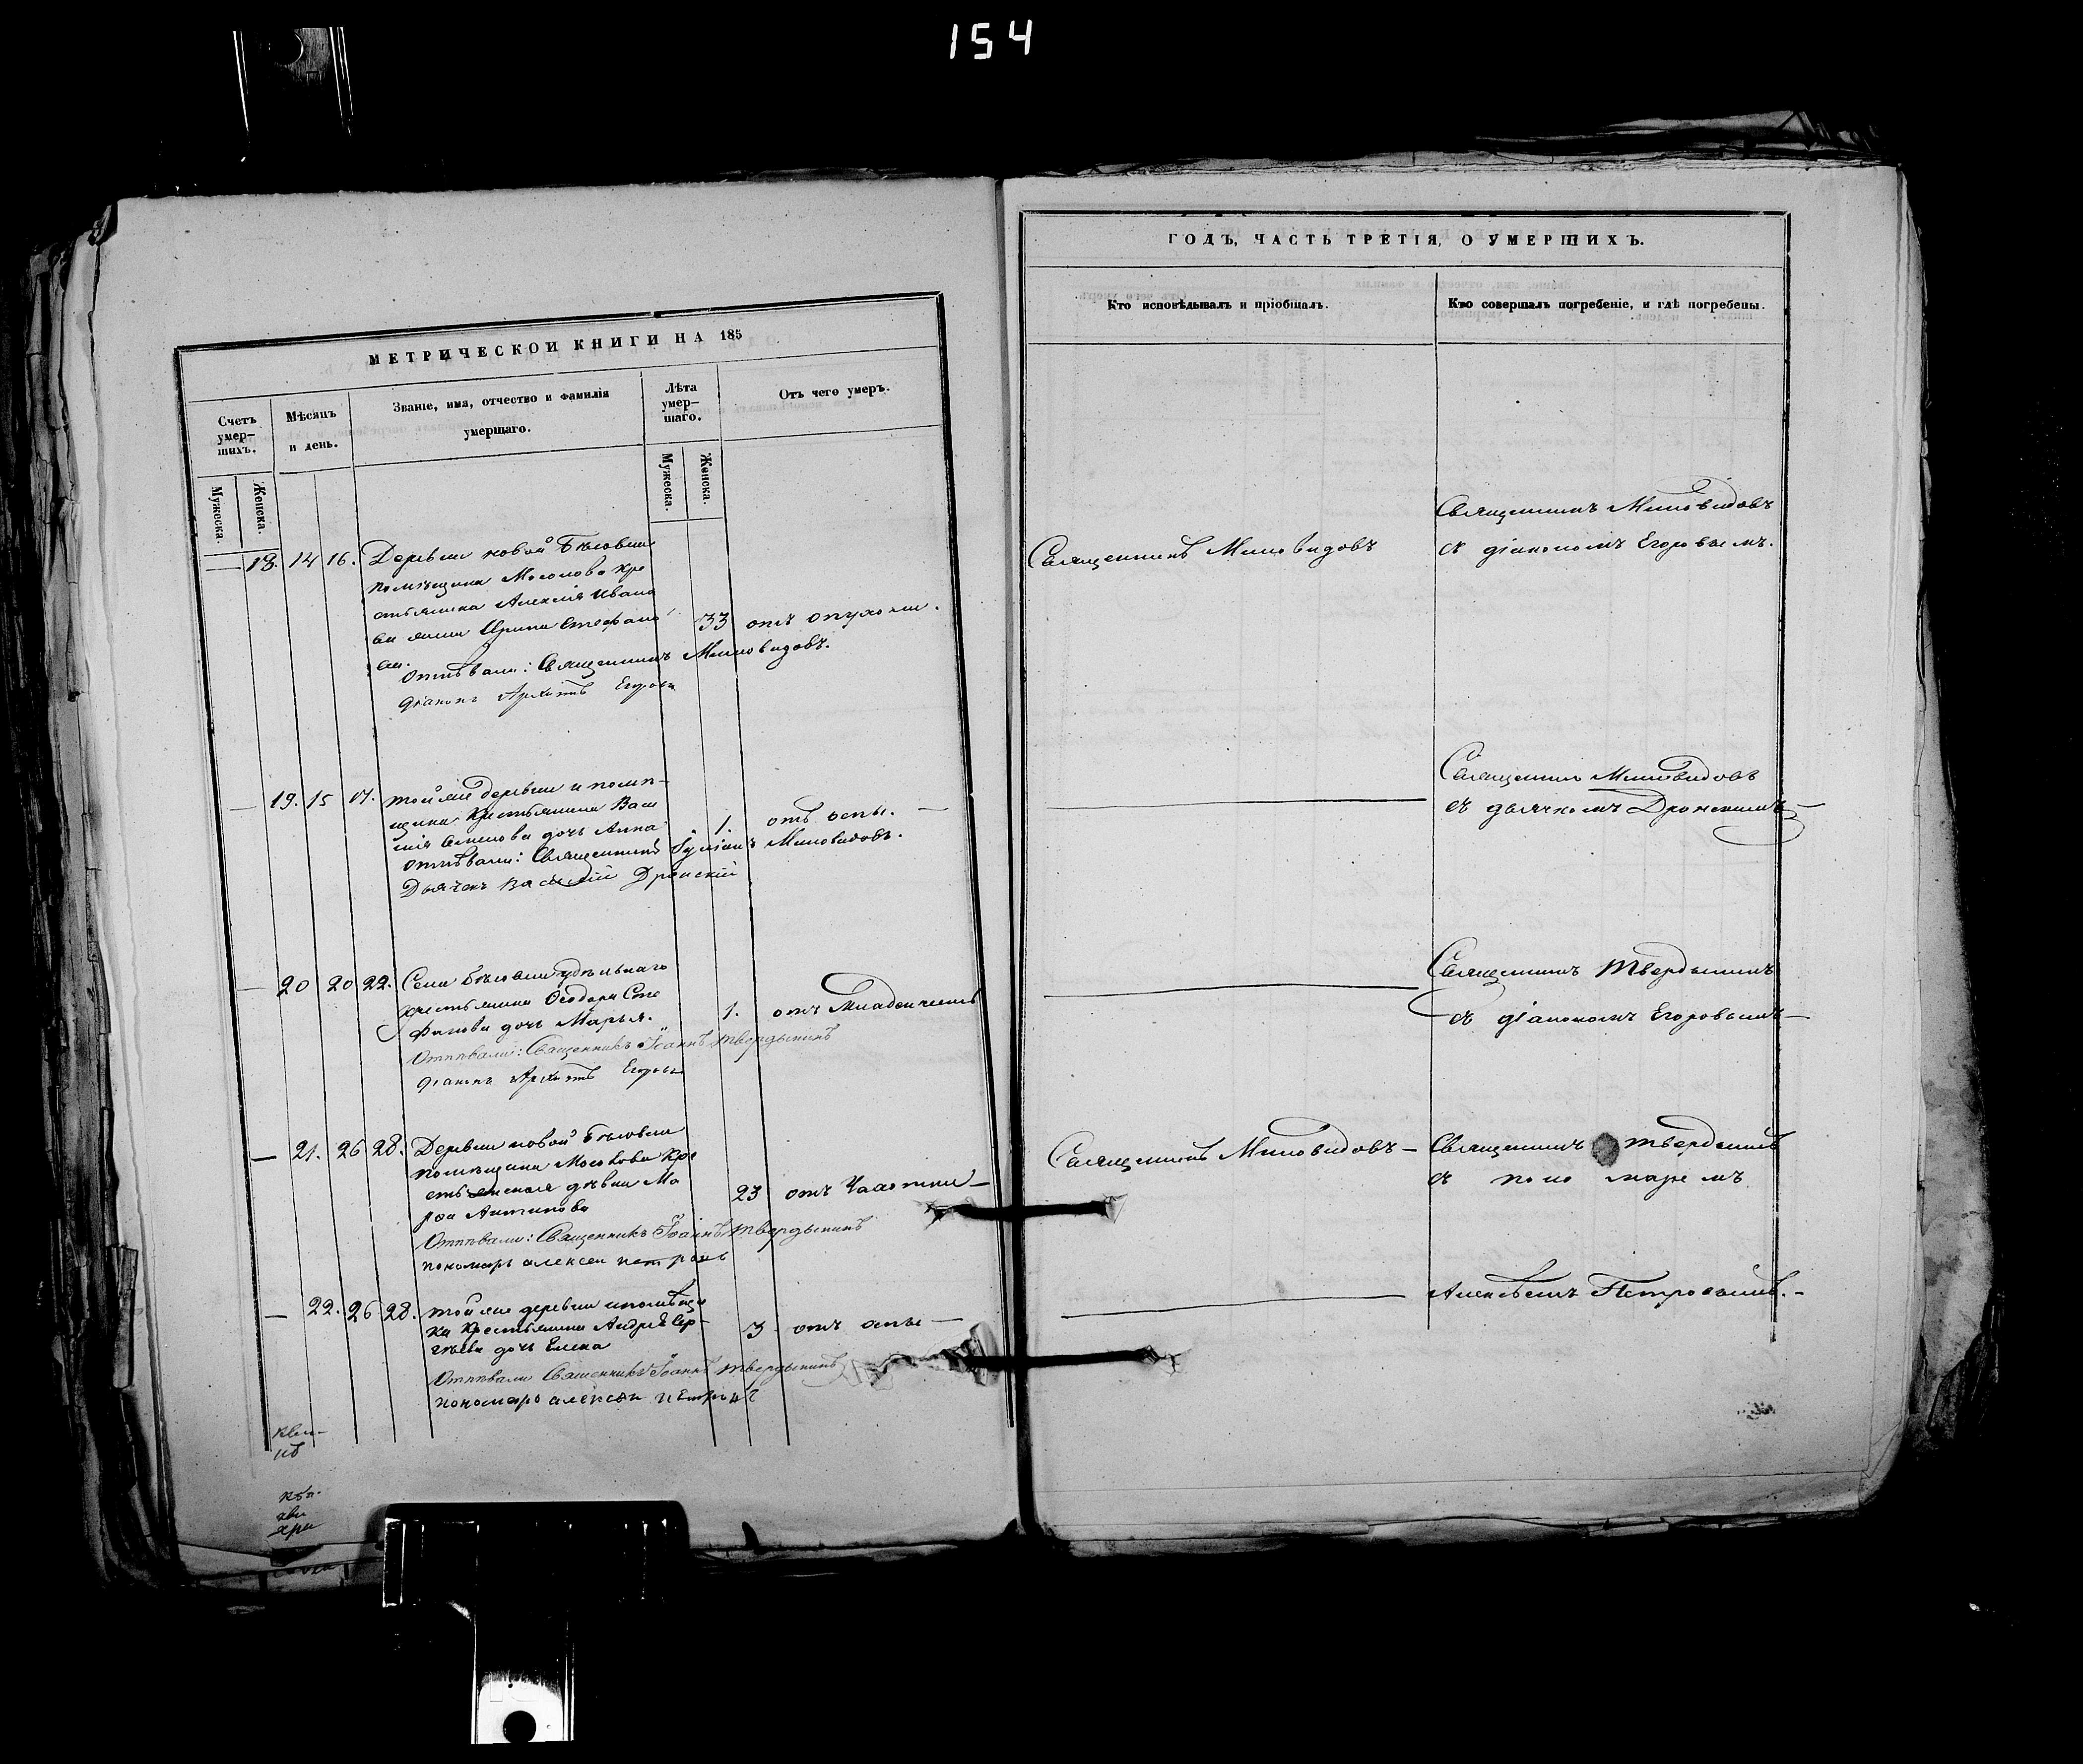 154
МЕТРИЧЕСКОЙ КНИГИ НА 185
Счетъ умер-шихъ.
Мѣсяцъ и день.
Званіе, имя, отчество и фамилія умершаго.
Лѣта умер-шаго.
Отъ чего умеръ.
Мужеска.
Женска.
Мужеска.
Женска.
18. 14 16. Деревни новой Бѣговни
помѣщика Мосолова кре
стьянина Алексія Ивано
ва жена Ирина Стефано
ва. 33 отъ опухоли.
Отпѣвали: Священникъ Миловидовъ.
діаконъ Архипъ Егоровъ
19. 15 17. тойже деревни и помѣ-
щика крестьянина Васи
лія Семенова дочь Анна 1. отъ оспы.
отпѣвали: Священникъ Миловидовъ.
Дьячекъ Василій Дронскій
20 20 22. Села удѣльнаго
крестьянина Ѳеодора Сте
фанова дочь Марья. 1. отъ младенческ
Отпѣвали: Священникъ Іоаннъ Твердынинъ
діаконъ Архипъ Егоровъ
21. 26 28. Деревни новой
помѣщика Мосолова кре
стьянская дѣвка Ма
Антипова 23 отъ Чахотки
Отпѣвали: Священникъ Іоаннъ Твердынинъ
пономарь алексеи петровъ
22. 26 28. тойже деревни и помѣщи
ка крестьянина Андрея Сер-
гѣева дочь Елена 3 отъ оспы
Отпѣвали Священникъ Іоаннъ Твердынинъ
пономарь алексѣи петровъ
ГОДЪ, ЧАСТЬ ТРЕТІЯ, О УМЕРШИХЪ.
Кто исповѣдывалъ и пріобщалъ.
Кто совершалъ погребеніе, и гдѣ погребены.
Священникъ Миловидовъ
Священникъ Миловидовъ
съ діакономъ Егоровымъ.
Священникъ Миловидовъ
съ дьячкомъ Дронскимъ
Священникъ Твердынинъ
съ діакономъ Егоровымъ
Священникъ Миловидовъ
Священникъ Твердынинъ
съ пономаремъ
Алексѣемъ Петровымъ.